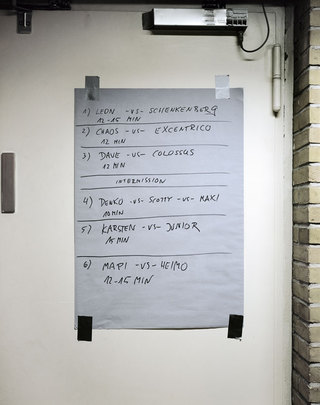 1) LEON -VS- SCHENKENBERG
12-15 MIN
2) CHAOS -VS- EXCENTRICO
12 MIN
3) DAVE -VS- COLOSSUS
12 MIN
INTERMISSION
4) DENKO -VS- SCOTTY -VS- MAKI
10 MIN
5) KARSTEN -VS- JUNIOR
15 MIN
6) MAPI -VS- HEIMO
12-15 MIN